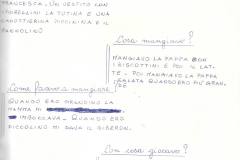 FRANCESCA. UN VESTITO CON
I FIORELLINI LA TUTINA E UNA
CAPOTTIGLIA PICCININA E IL
PAGNOLINO
Cosa mangiavo?
MANGIAVO LA PAPPA CON
I BISCOTTINI E POI IL LAT-
TE. POI MANGIAVO LA PAPPA
SALATA QUANDO ERO PIÙ GRAN-
DE
Come facevo a mangiare?
QUANDO ERO GRANDINO LA
MAMMA MI
IMBOCCAVA. QUANDO ERO
PICCOLINO MI DAVA IL BIBERON.
Con cosa giocavo?